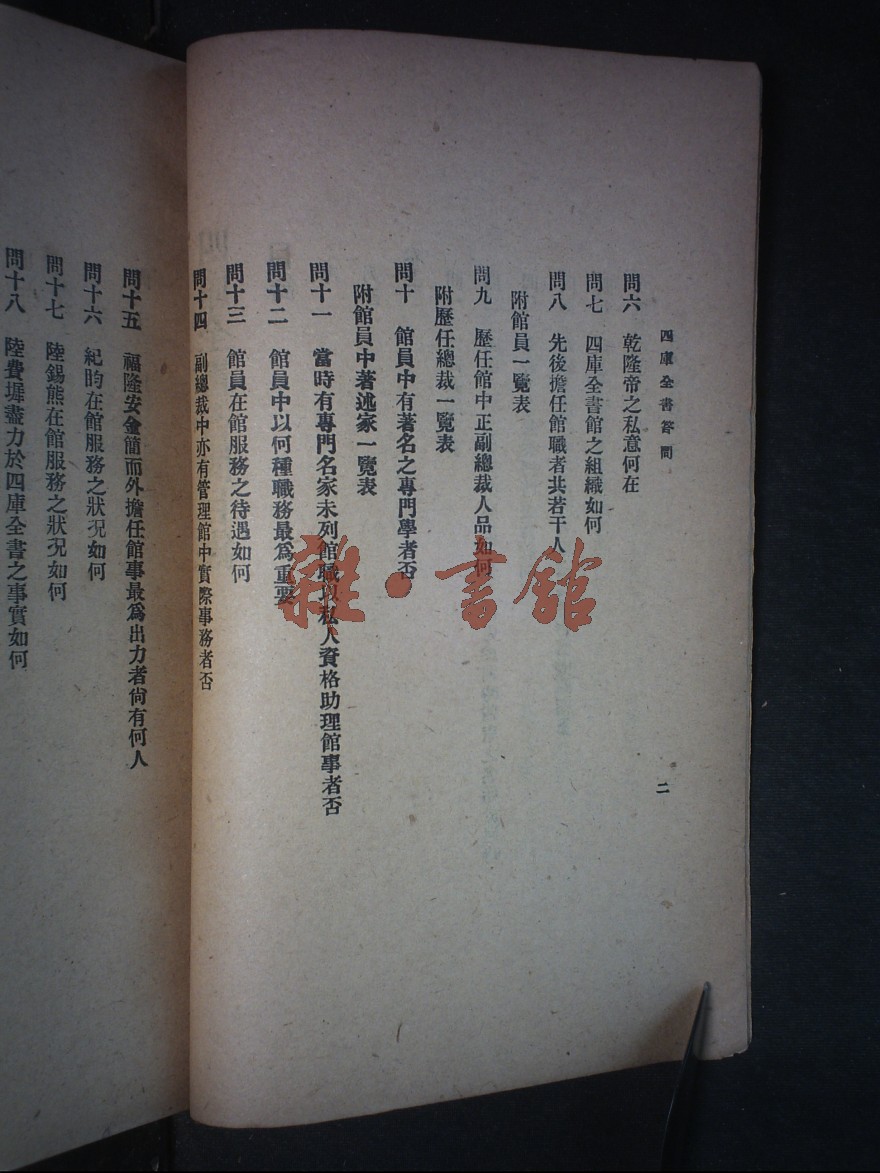 四庫全書答問
二
問六 乾隆帝之私意何在
問七 四庫全書館之組織如何
問八 先後擔任館職者共若干人
附館員一覽表
問九 歷任館中正副總裁人品如何
附歷任總裁一覽表
問十 館員中有著名之專門學者否
附館員中著述家一覽表
問十一 當時有專門名家未列館職以私人資格助理館事者否
問十二 館員中以何種職務最爲重要
問十三 館員在館服務之待遇如何
問十四 副總裁中亦有管理館中實際事務者否
問十五 福隆安金簡而外擔任館事最爲出力者尙有何人
問十六 紀昀在館服務之狀况如何
問十七 陸錫熊在館服務之狀况如何
問十八 陸費墀盡力於四庫全書之事實如何
雜·書館